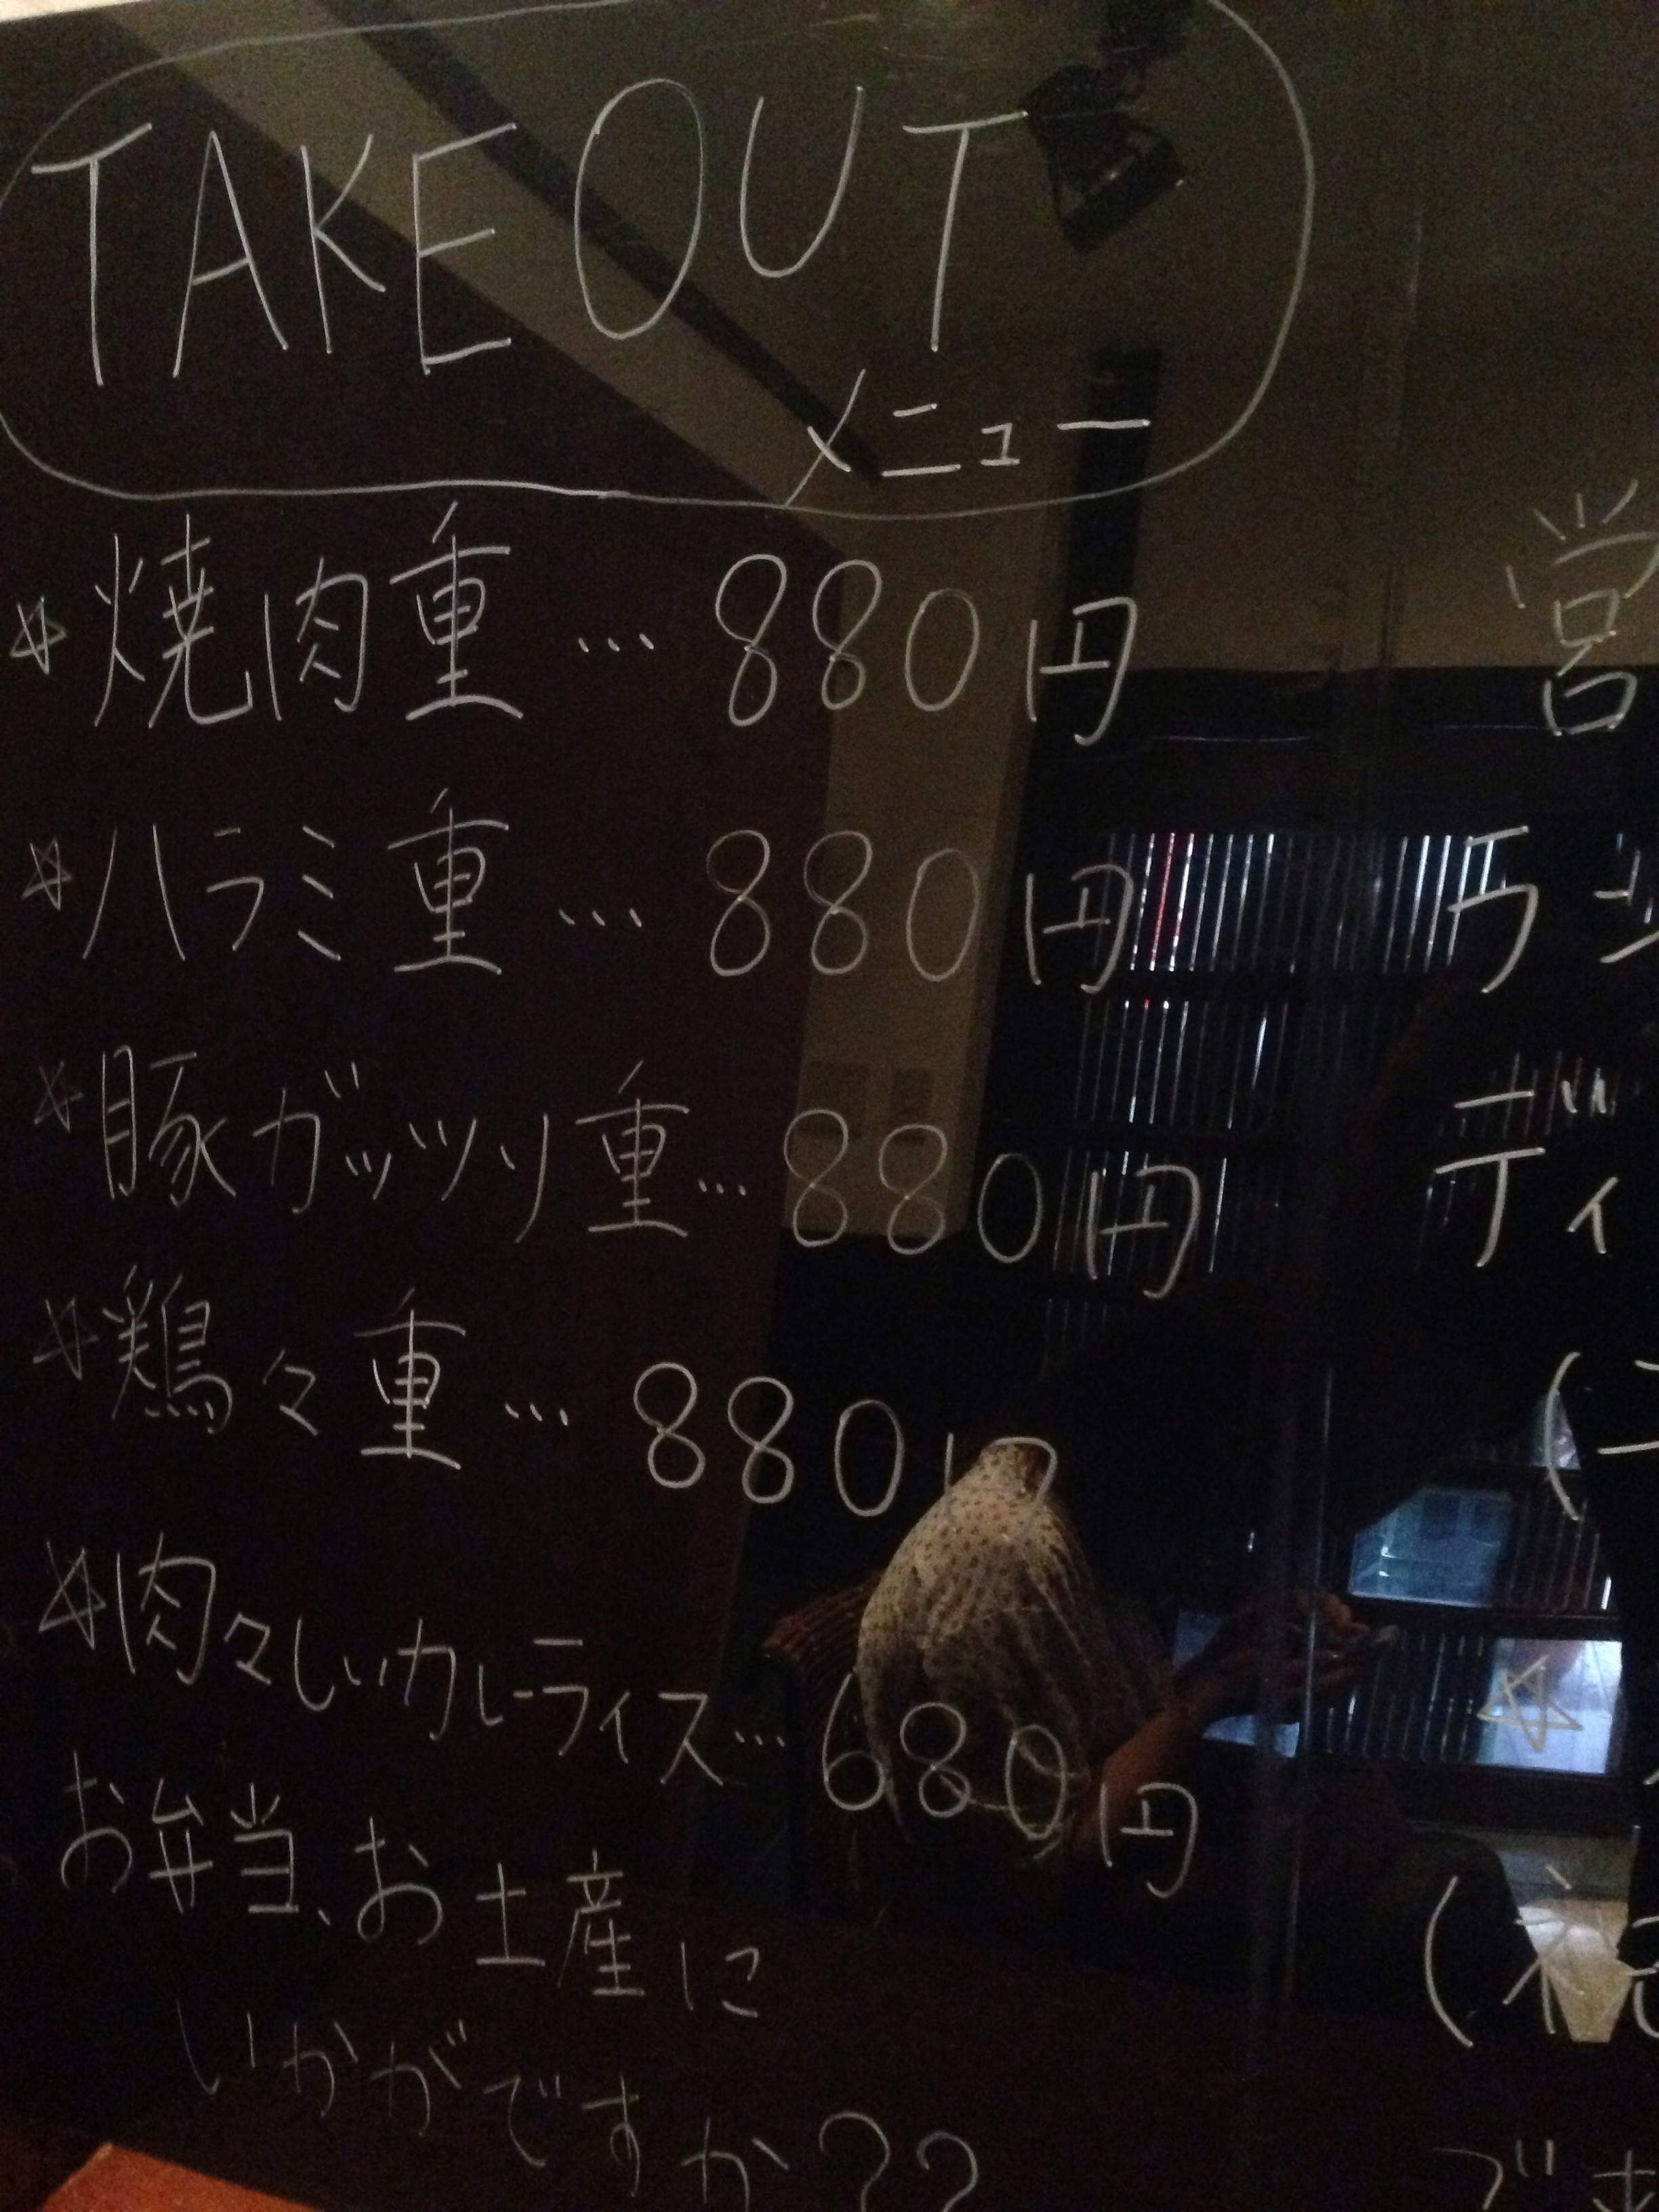 TAKE OUT
メニュー
☆焼肉重…880円
☆ハラミ重…880円
☆豚ガッツリ重…880円
☆鶏々重…880円
☆肉々しいカレーライス…680円
お弁当、お土産に
いかがですか??
営
ラン
ディ
☆